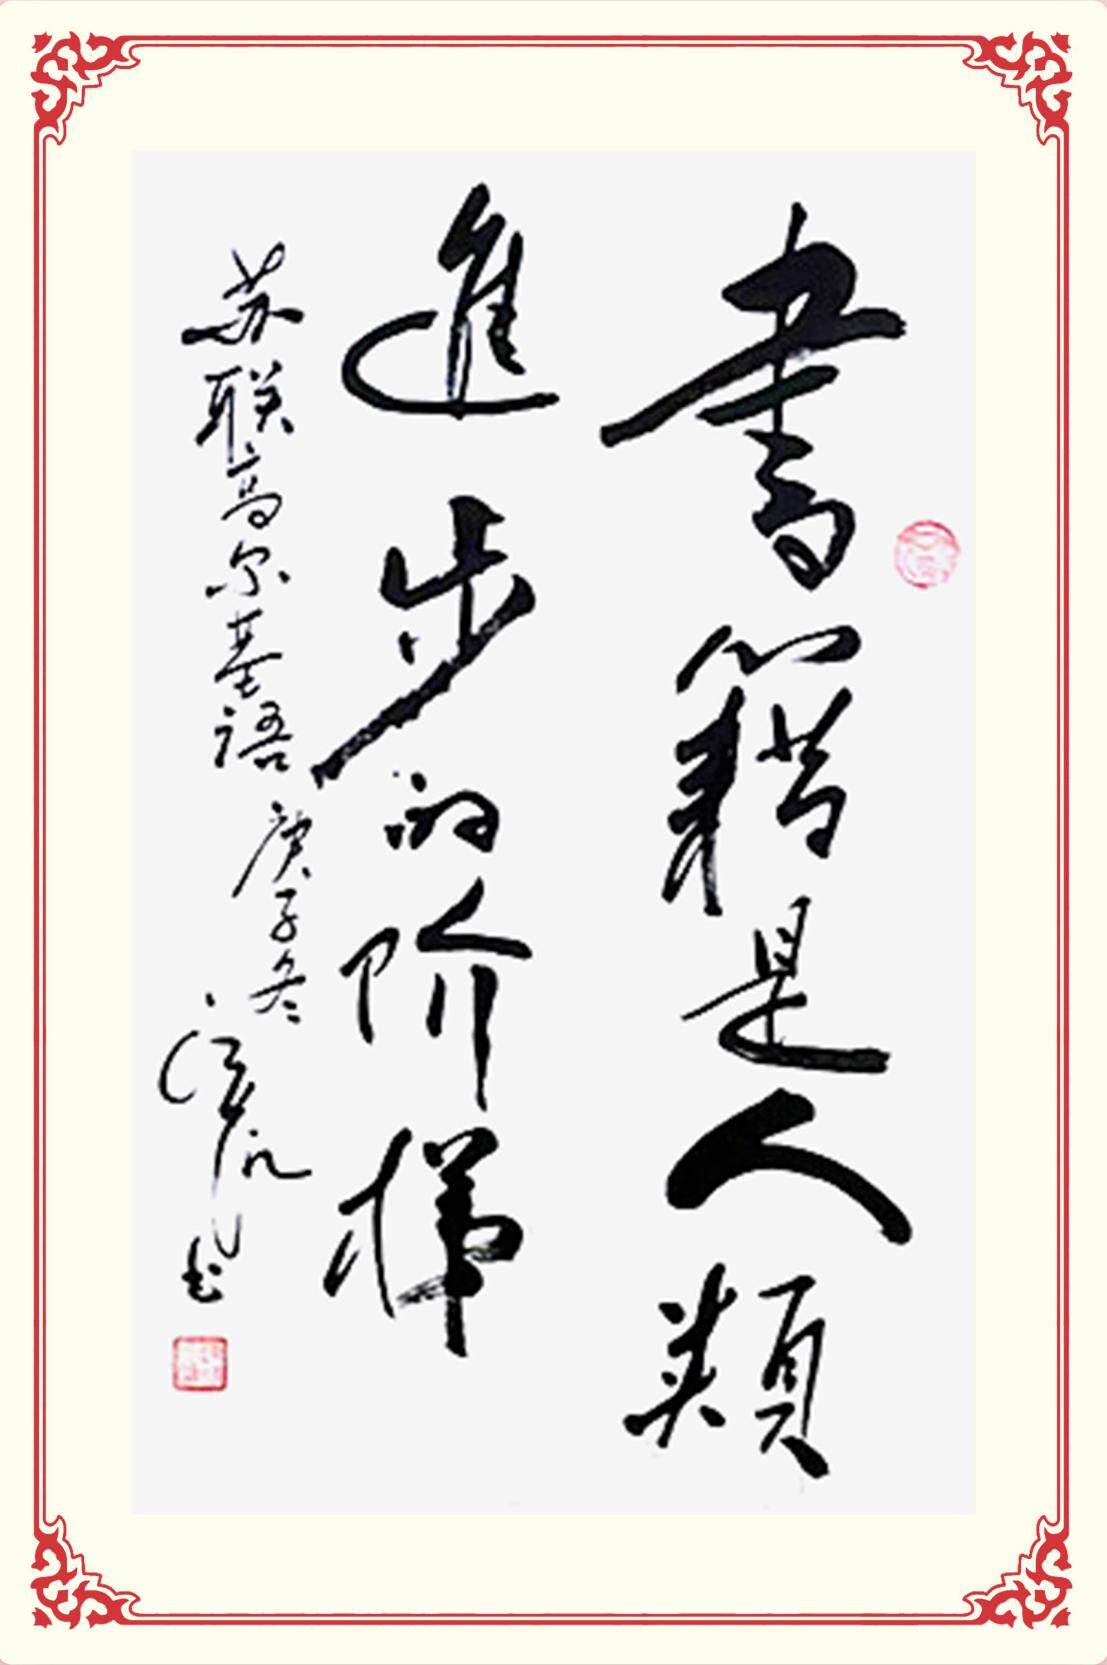 書籍是人類
進步的阶梯
苏联高尔基语
庚子冬
书